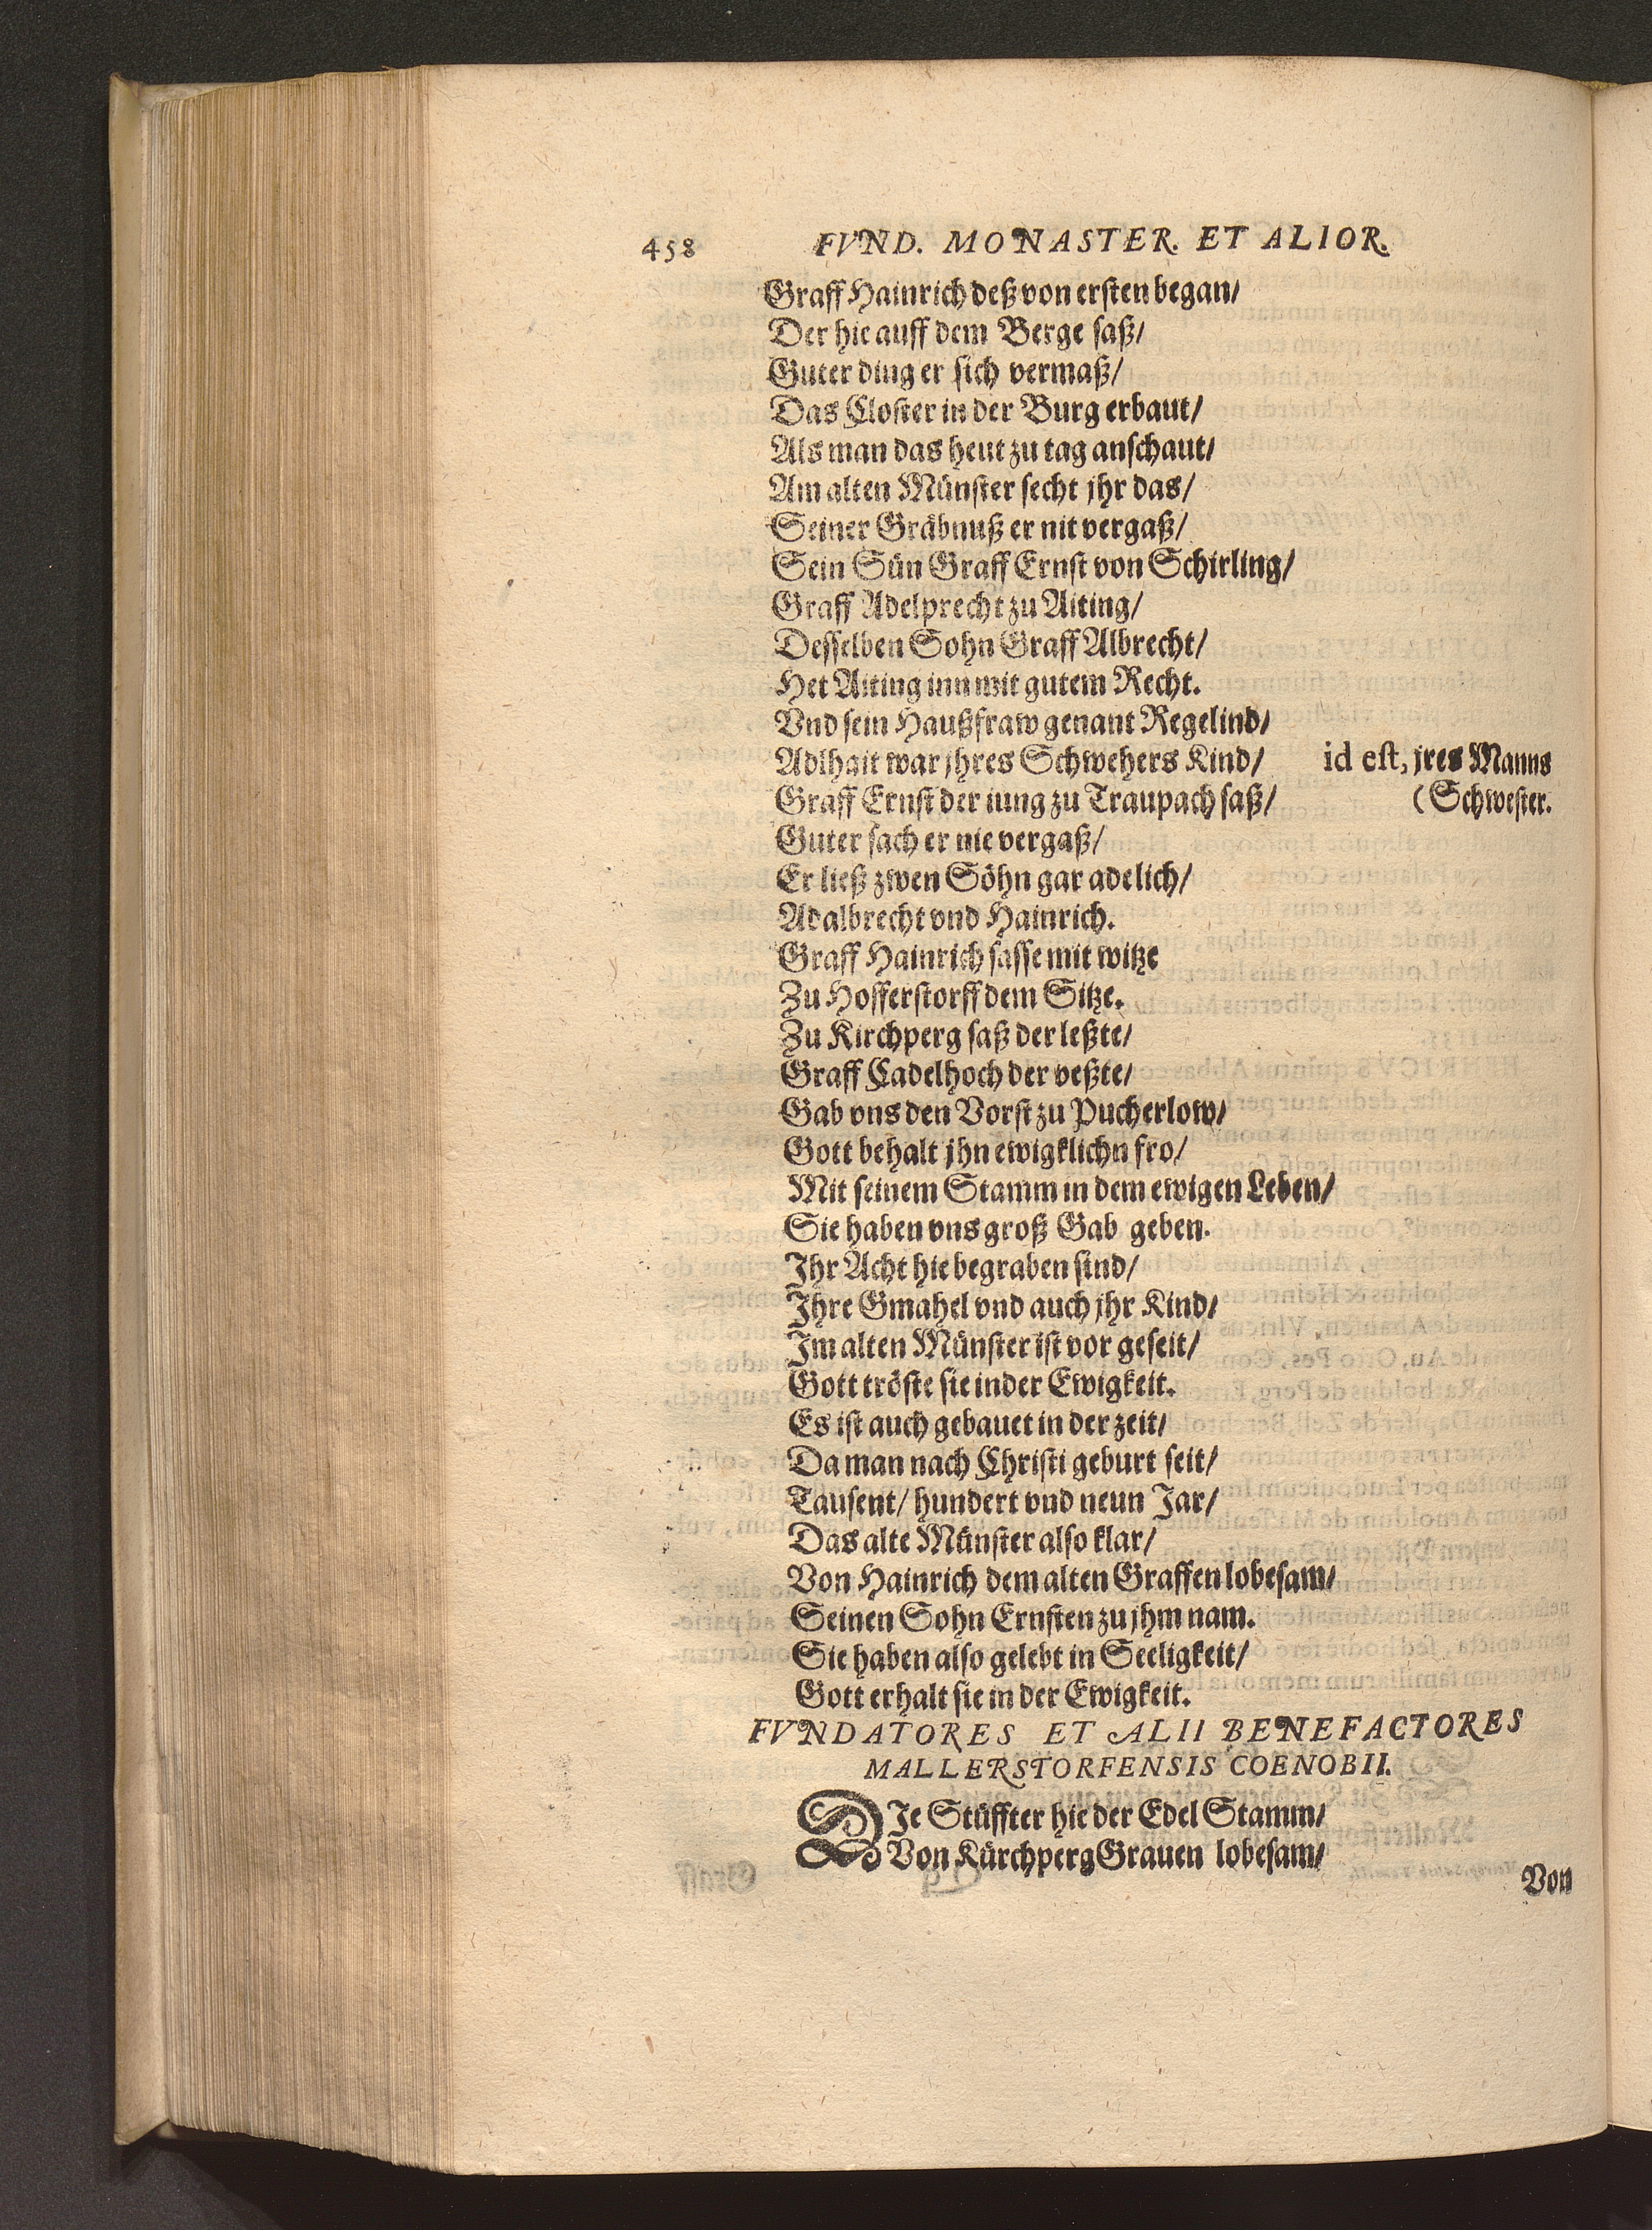 458 FVND. MONASTER. ET ALIOR.
Graff Hainrich deß von ersten began/
Der hie auff dem Berge saß/
Guter ding er sich vermaß/
Das Closter in der Burg erbaut/
Als man das heut zu tag anschaut/
Am alten Münster secht jhr das/
Seiner Gräbnuß er nit vergaß/
Sein Sün Graff Ernst von Schirling/
Graff Adelprecht zu Aiting/
Desselben Sohn Graff Albrecht/
Het Aiting inn mit gutem Recht.
Vnd sein Haußfraw genant Regelind/
Adlhait war jhres Schwehers Kind/ id est, jres Manns
Graff Ernst der iung zu Traupach saß/ (Schwester.
Guter sach er nie vergaß/
Er ließ zwen Söhn gar adelich/
Adalbrecht vnd Hainrich.
Graff Hainrich sasse mit witze
Zu Hofferstorff dem Sitze.
Zu Kirchperg saß der leßte/
Graff Cadelhoch der veßte/
Gab vns den Vorst zu Pucherlow/
Gott behalt jhn ewigklichn fro/
Mit seinem Stamm in dem ewigen Leben/
Sie haben vns groß Gab geben.
Ihr Acht hie begraben sind/
Ihre Gmahel vnd auch jhr Kind/
Im alten Münster ist vor geseit/
Gott tröste sie inder Ewigkeit.
Es ist auch gebauet in der zeit/
Da man nach Christi geburt seit/
Tausent/ hundert vnd neun Jar/
Das alte Münster also klar/
Von Hainrich dem alten Graffen lobesam/
Seinen Sohn Ernsten zu jhm nam.
Sie haben also gelebt in Seeligkeit/
Gott erhalt sie in der Ewigkeit.
FVNDATORES ET ALII BENEFACTORES
MALLERSTORFENSIS COENOBII.
DIe Stüffter hie der Edel Stamm/
Von Kürchperg Grauen lobesam/
Von